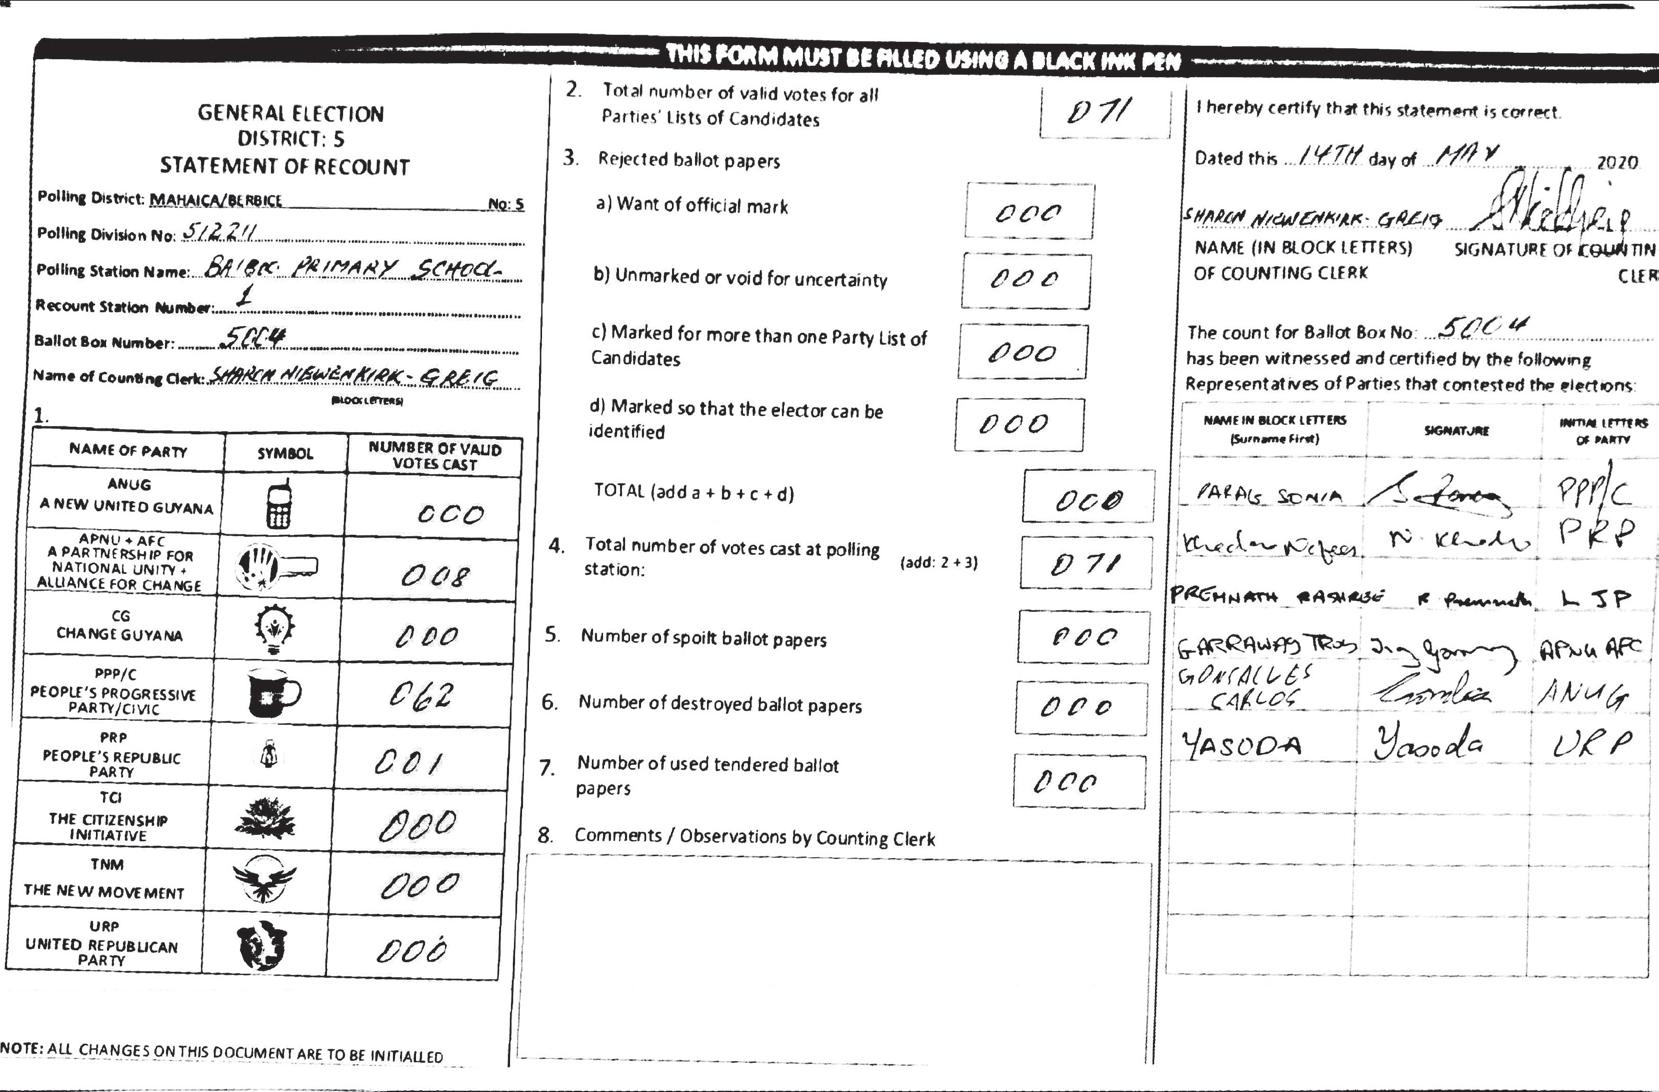 THIS FORM MUST BE FILLED USING A BLACK INK PEN
GENERAL ELECTION
DISTRICT: 5
STATEMENT OF RECOUNT
Polling District: MAHAICA/BERBICE No: 5
Polling Division No: 512211
Polling Station Name: PRIMARY SCHOOL
Recount Station Number: 1
Ballot Box Number: 5004
Name of Counting Clerk: SHARON NIEWENKIRK-GREIG
(BLOCK LETTERS)
1.
NAME OF PARTY SYMBOL NUMBER OF VALID VOTES CAST
ANUG
A NEW UNITED GUYANA 000
APNU + AFC
A PARTNERSHIP FOR
NATIONAL UNITY +
ALLIANCE FOR CHANGE 008
CG
CHANGE GUYANA 000
PPP/C
PEOPLE'S PROGRESSIVE
PARTY/CIVIC 062
PRP
PEOPLE'S REPUBLIC
PARTY 001
TCI
THE CITIZENSHIP
INITIATIVE 000
TNM
THE NEW MOVEMENT 000
URP
UNITED REPUBLICAN
PARTY 000
NOTE: ALL CHANGES ON THIS DOCUMENT ARE TO BE INITIALLED
2. Total number of valid votes for all
Parties' Lists of Candidates 071
3. Rejected ballot papers
a) Want of official mark 000
b) Unmarked or void for uncertainty 000
c) Marked for more than one Party List of
Candidates 000
d) Marked so that the elector can be
identified 000
TOTAL (add a + b + c + d) 000
4. Total number of votes cast at polling
station: (add: 2 + 3) 071
5. Number of spoilt ballot papers 000
6. Number of destroyed ballot papers 000
7. Number of used tendered ballot
papers 000
8. Comments / Observations by Counting Clerk
I hereby certify that this statement is correct.
Dated this 14TH day of MAY 2020
SHARON NIEWENKIRK-GREIG
NAME (IN BLOCK LETTERS) SIGNATURE OF COUNTIN
OF COUNTING CLERK CLER
The count for Ballot Box No: 5004
has been witnessed and certified by the following
Representatives of Parties that contested the elections:
NAME IN BLOCK LETTERS
(Surname First) SIGNATURE INITIAL LETTERS
OF PARTY
PARAG SONIA PPP/C
PRP
PREMNATH R Premnath LJP
GARRAWAY TROY APNU AFC
GONSALVES
CARLOS ANUG
YASODA Yasoda URP